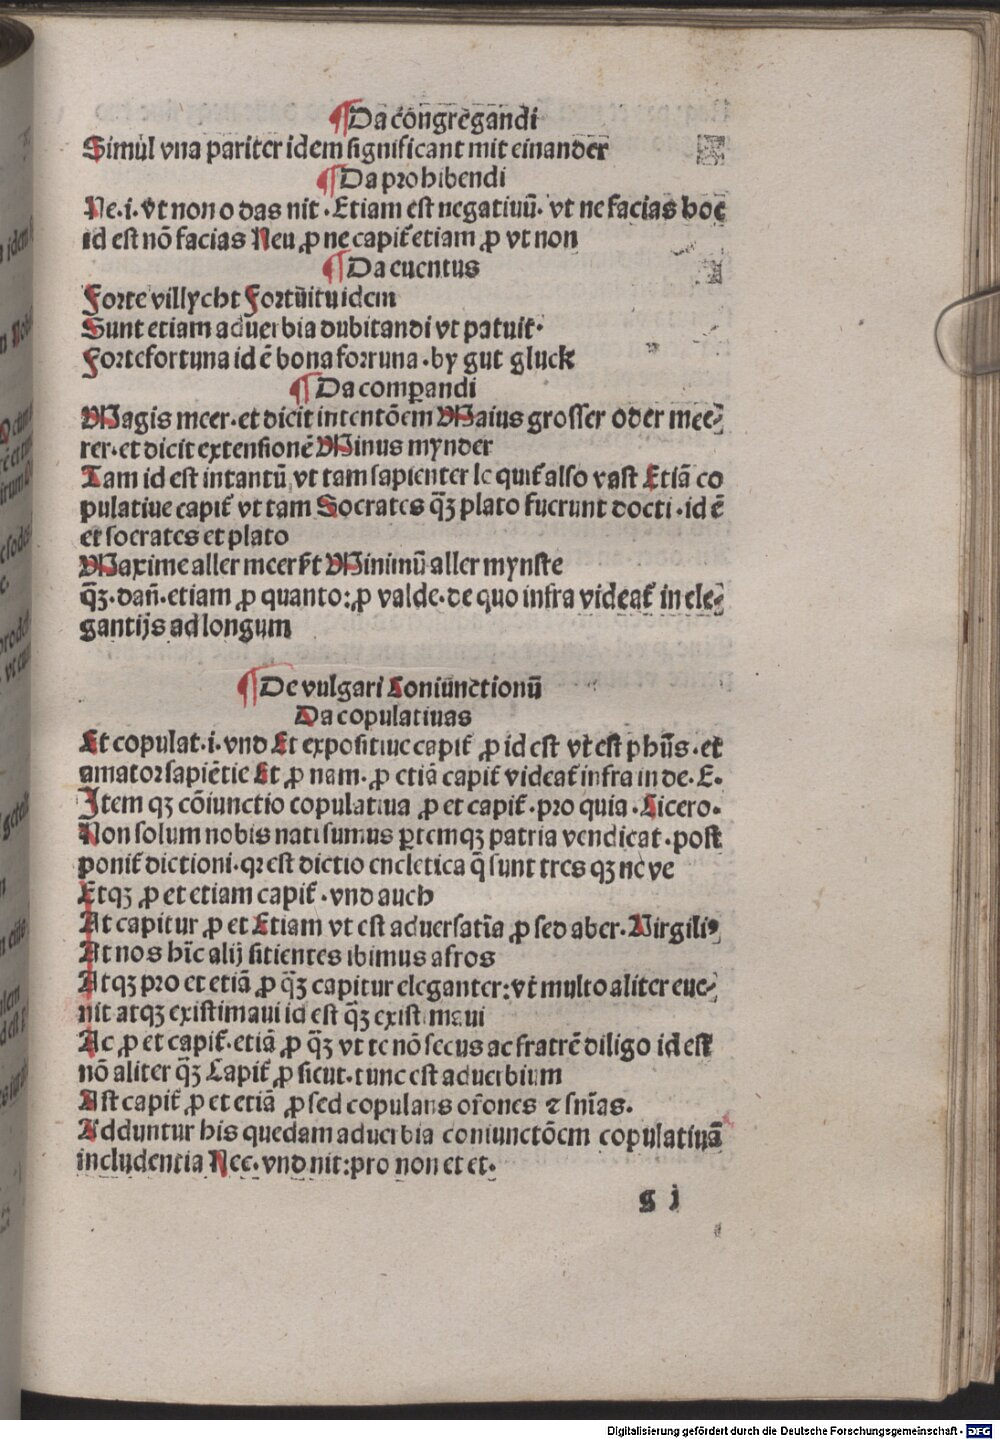 ¶ Da cōngrēgandi
Simul vna pariter idem significant mit einander
¶ Da prohibendi
Ne .i. vt non o das nit . Etiam est negatiuū. vt ne facias hoc
id est nō facias Neu ꝓ ne capit̄ etiam ꝓ vt non
¶ Da euentus
Forte villycht Fortuitu idem
Sunt etiam aduerbia dubitandi vt patuit.
Fortefortuna id ē bona forruna . by gut gluck
¶ Da comꝑandi
Magis meer . et dicit intentōem Maius grosser oder mee⸗
rer . et dicit extensionē Minus mynder
Tam id est intantū vt tam sapienter loquit̄ also vast Etiā co
pulatiue capit̄ vt tam Socrates q̄ꝫ plato fuerunt docti . id ē
et socrates et plato
Maxime aller meerst Minimū aller mynste
q̄ꝫ . dañ . etiam ꝓ quanto : ꝓ valde . de quo infra videat̄ in ele⸗
gantijs ad longum
¶ De vulgari Coniunctionū
Da copulatiuas
Et copulat .i. vnd Et expositiue capit̄ ꝓ id est vt est phūs . et
amator sapiētie Et ꝓ nam . ꝓ etiā capit̄ videat̄ infra in de . E.
Item qꝫ cōiunctio copulatiua ꝓ et capit̄ . pro quia . Cicero.
Non solum nobis nati sumus ꝑtemqꝫ patria vendicat . post
ponit̄ dictioni . qꝛ est dictio encletica q̄ sunt tres qꝫ ne ve
Etqꝫ ꝓ et etiam capit̄ . vnd auch
At capitur ꝓ et Etiam vt est aduersatīa ꝓ sed aber . Virgiliꝰ
At nos hīc alij sitientes ibimus afros
Atqꝫ pro et etiā ꝓ q̄ꝫ capitur eleganter : vt multo aliter eue⸗
nit atqꝫ existimaui id est q̄ꝫ existimaui
Ac ꝓ et capit̄ . etiā ꝓ q̄ꝫ vt te nō secus ac fratrē diligo id est
nō aliter q̄ꝫ Capit̄ ꝓ sicut . tunc est aduerbium
Ast capit̄ ꝓ et etiā ꝓ sed copulans or̄ones ⁊ sn̄ias.
Adduntur his quedam aduerbia coniunctōem copulatiuā
includentia Nec . vnd nit : pro non et et.
g i
Digitalisierung gefördert durch die Deutsche Forschungsgemeinschaft - DFG